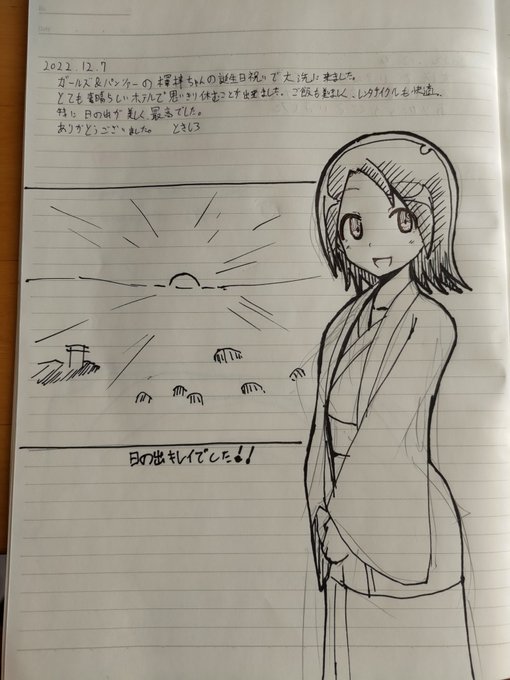 2022.12.7
ガールズ&パンツァーの 梓ちゃんの誕生日祝いで大洗に来ました。
とても素晴らしいホテルで思いきり休むことが出来ました。ご飯も美味しく、レンタサイクルも快適。
特に日の出が美しく最高でした。
ありがとうございました。 ときしろ
日の出キレイでした!!